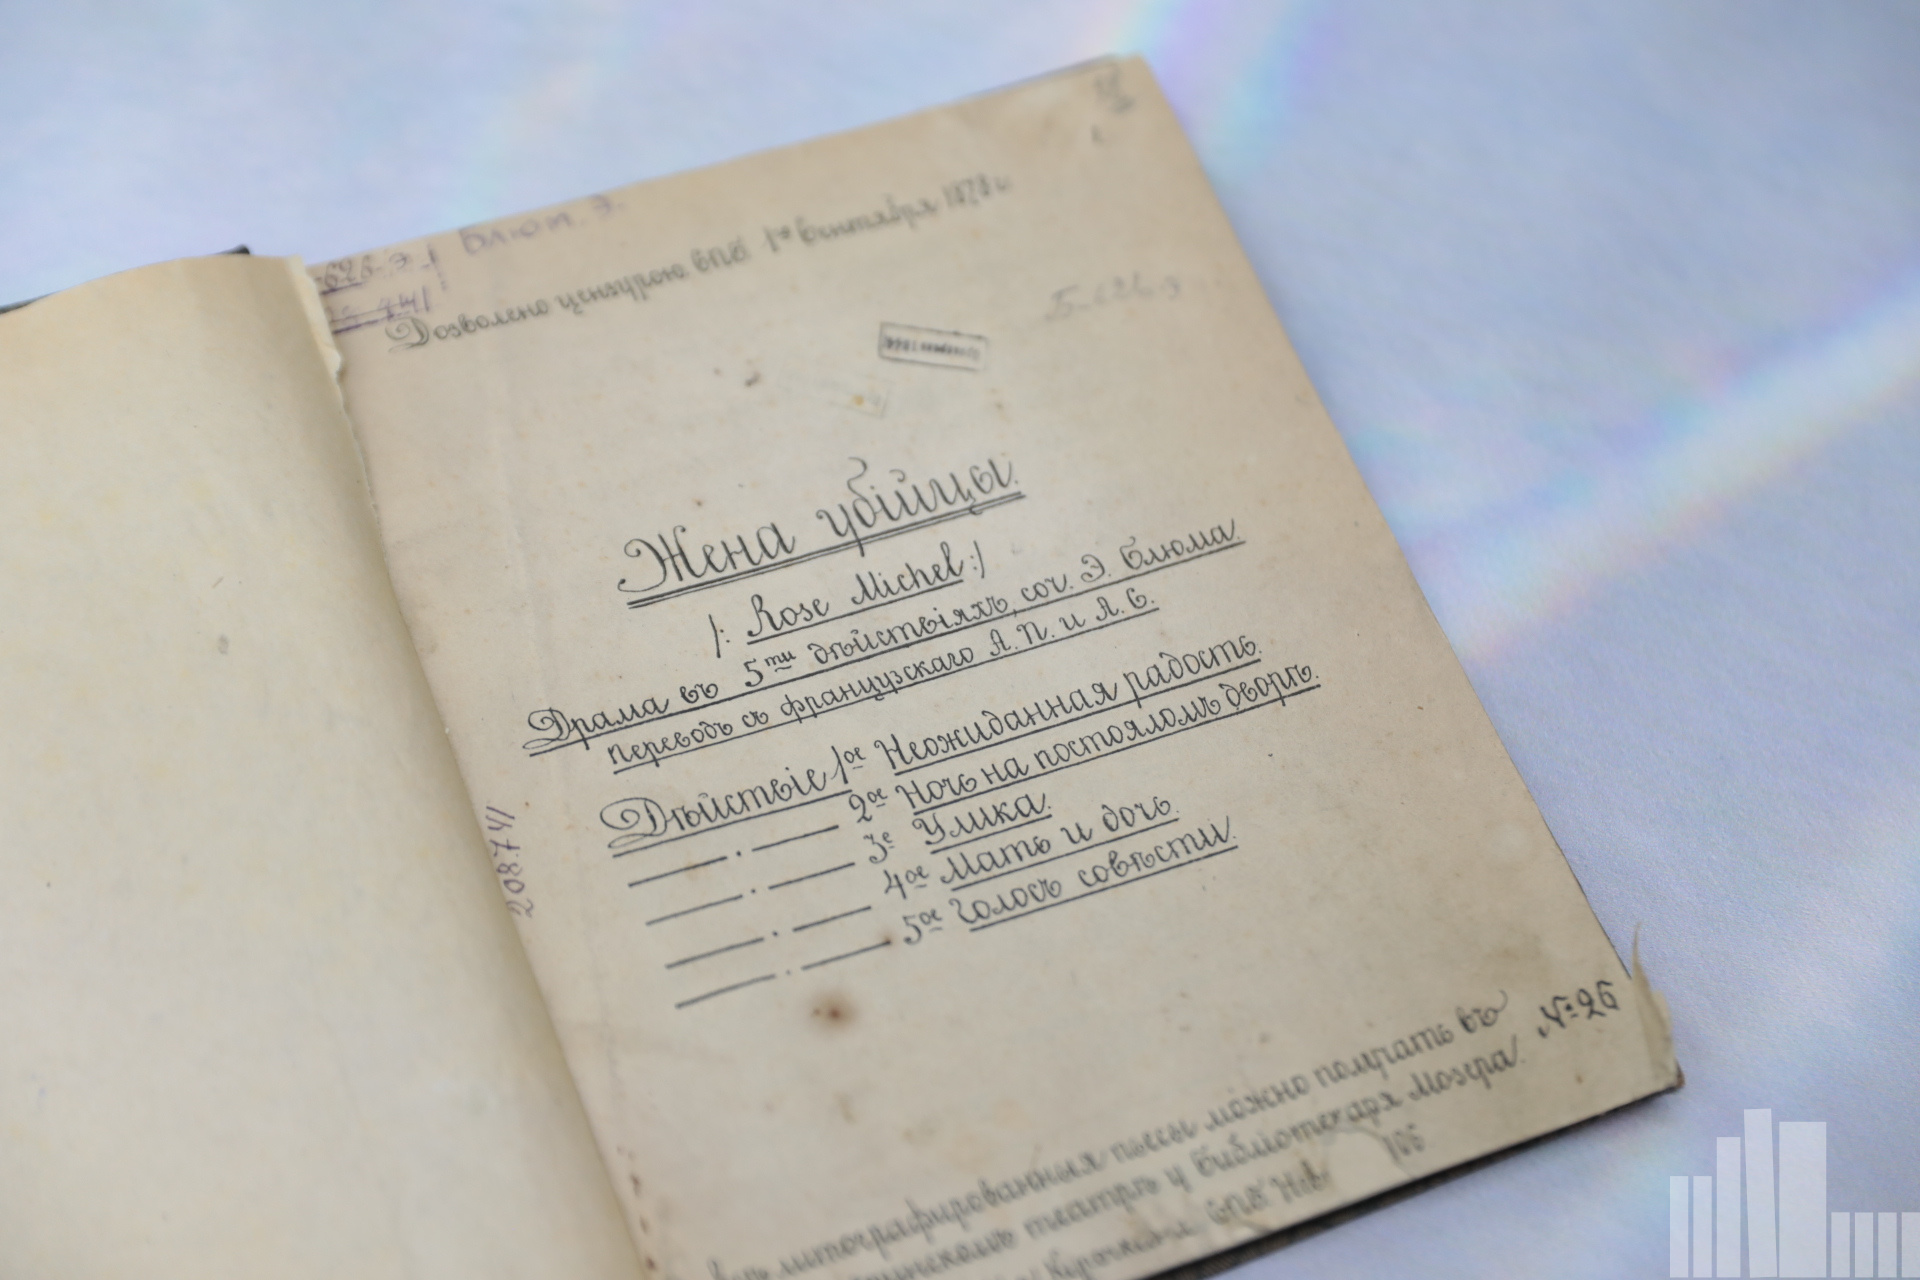 Блюм. Э.
Дозволено цензурою СПБ 1го Сентября 1878 г.
Б-626 Э
Проверено 1966
Жена убійцы.
/: Rose Michel :/
Драма въ 5ти дѣйствіяхъ, соч. Э. Блюма.
переводъ съ французскаго А. П. и А. С.
Дѣйствіе 1ое Неожиданная радость.
— . — 2ое Ночь на постояломъ дворѣ.
— . — 3е Улика.
— . — 4ое Мать и дочь.
— . — 5ое Голосъ совѣсти.
208741
литографированныя пьесы можно получать въ
театрѣ у библиотекаря Мозера. № 26
СПБ Нев. 106